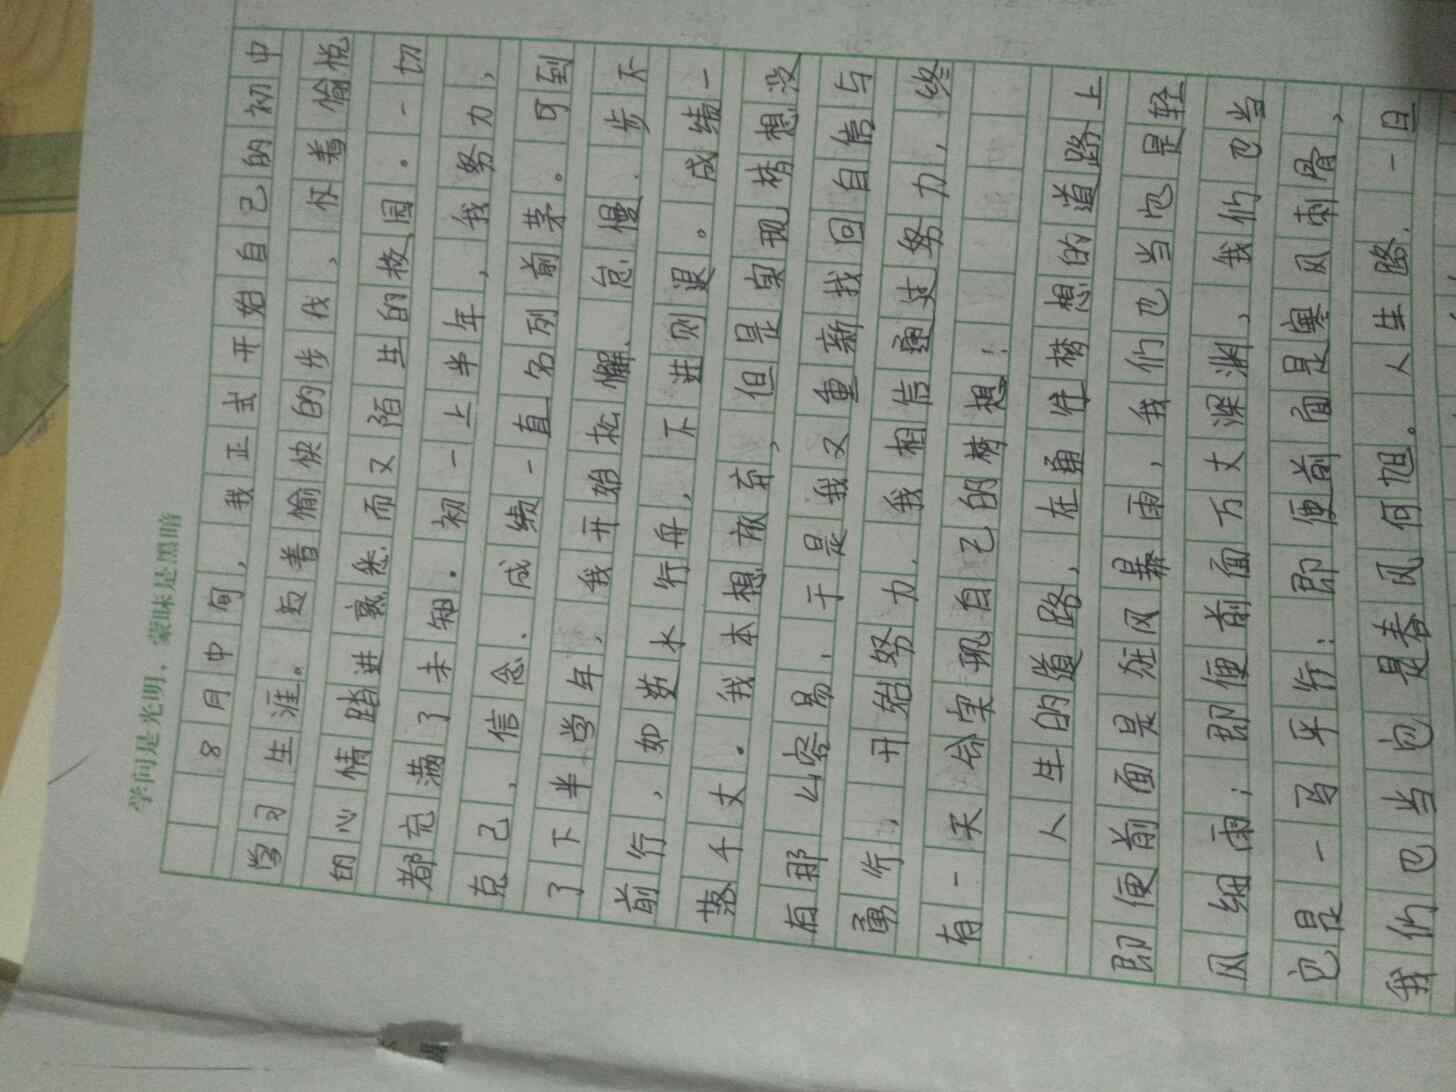 学问是光明，蒙昧是黑暗
8月中旬，我正式开始自己的初中
学习生涯。踏着愉快的步伐，怀着愉悦
的心情踏进熟悉而又陌生的校园。一切
都充满了未知。初一上半年，我努力，
克己，信念、成绩一直名列前茅。可到
了下半学年，我开始松懈、怠慢、步不
前行，如逆水行舟，不进则退。成绩一
落千丈。我本想放弃，但是实现梦想没
有那么容易，于是我又重新找回自信与
勇行，开始努力，我相信通过努力，终
有一天会实现自己的梦想！
人生的道路，在通往梦想的道路上
即便前面是狂风暴雨，我们也当它是轻
风细雨；即便前面万丈深渊，我们也当
它是一马平行；即便前面是寒风刺骨，
我们也当它是春风何旭。人生路，一旦